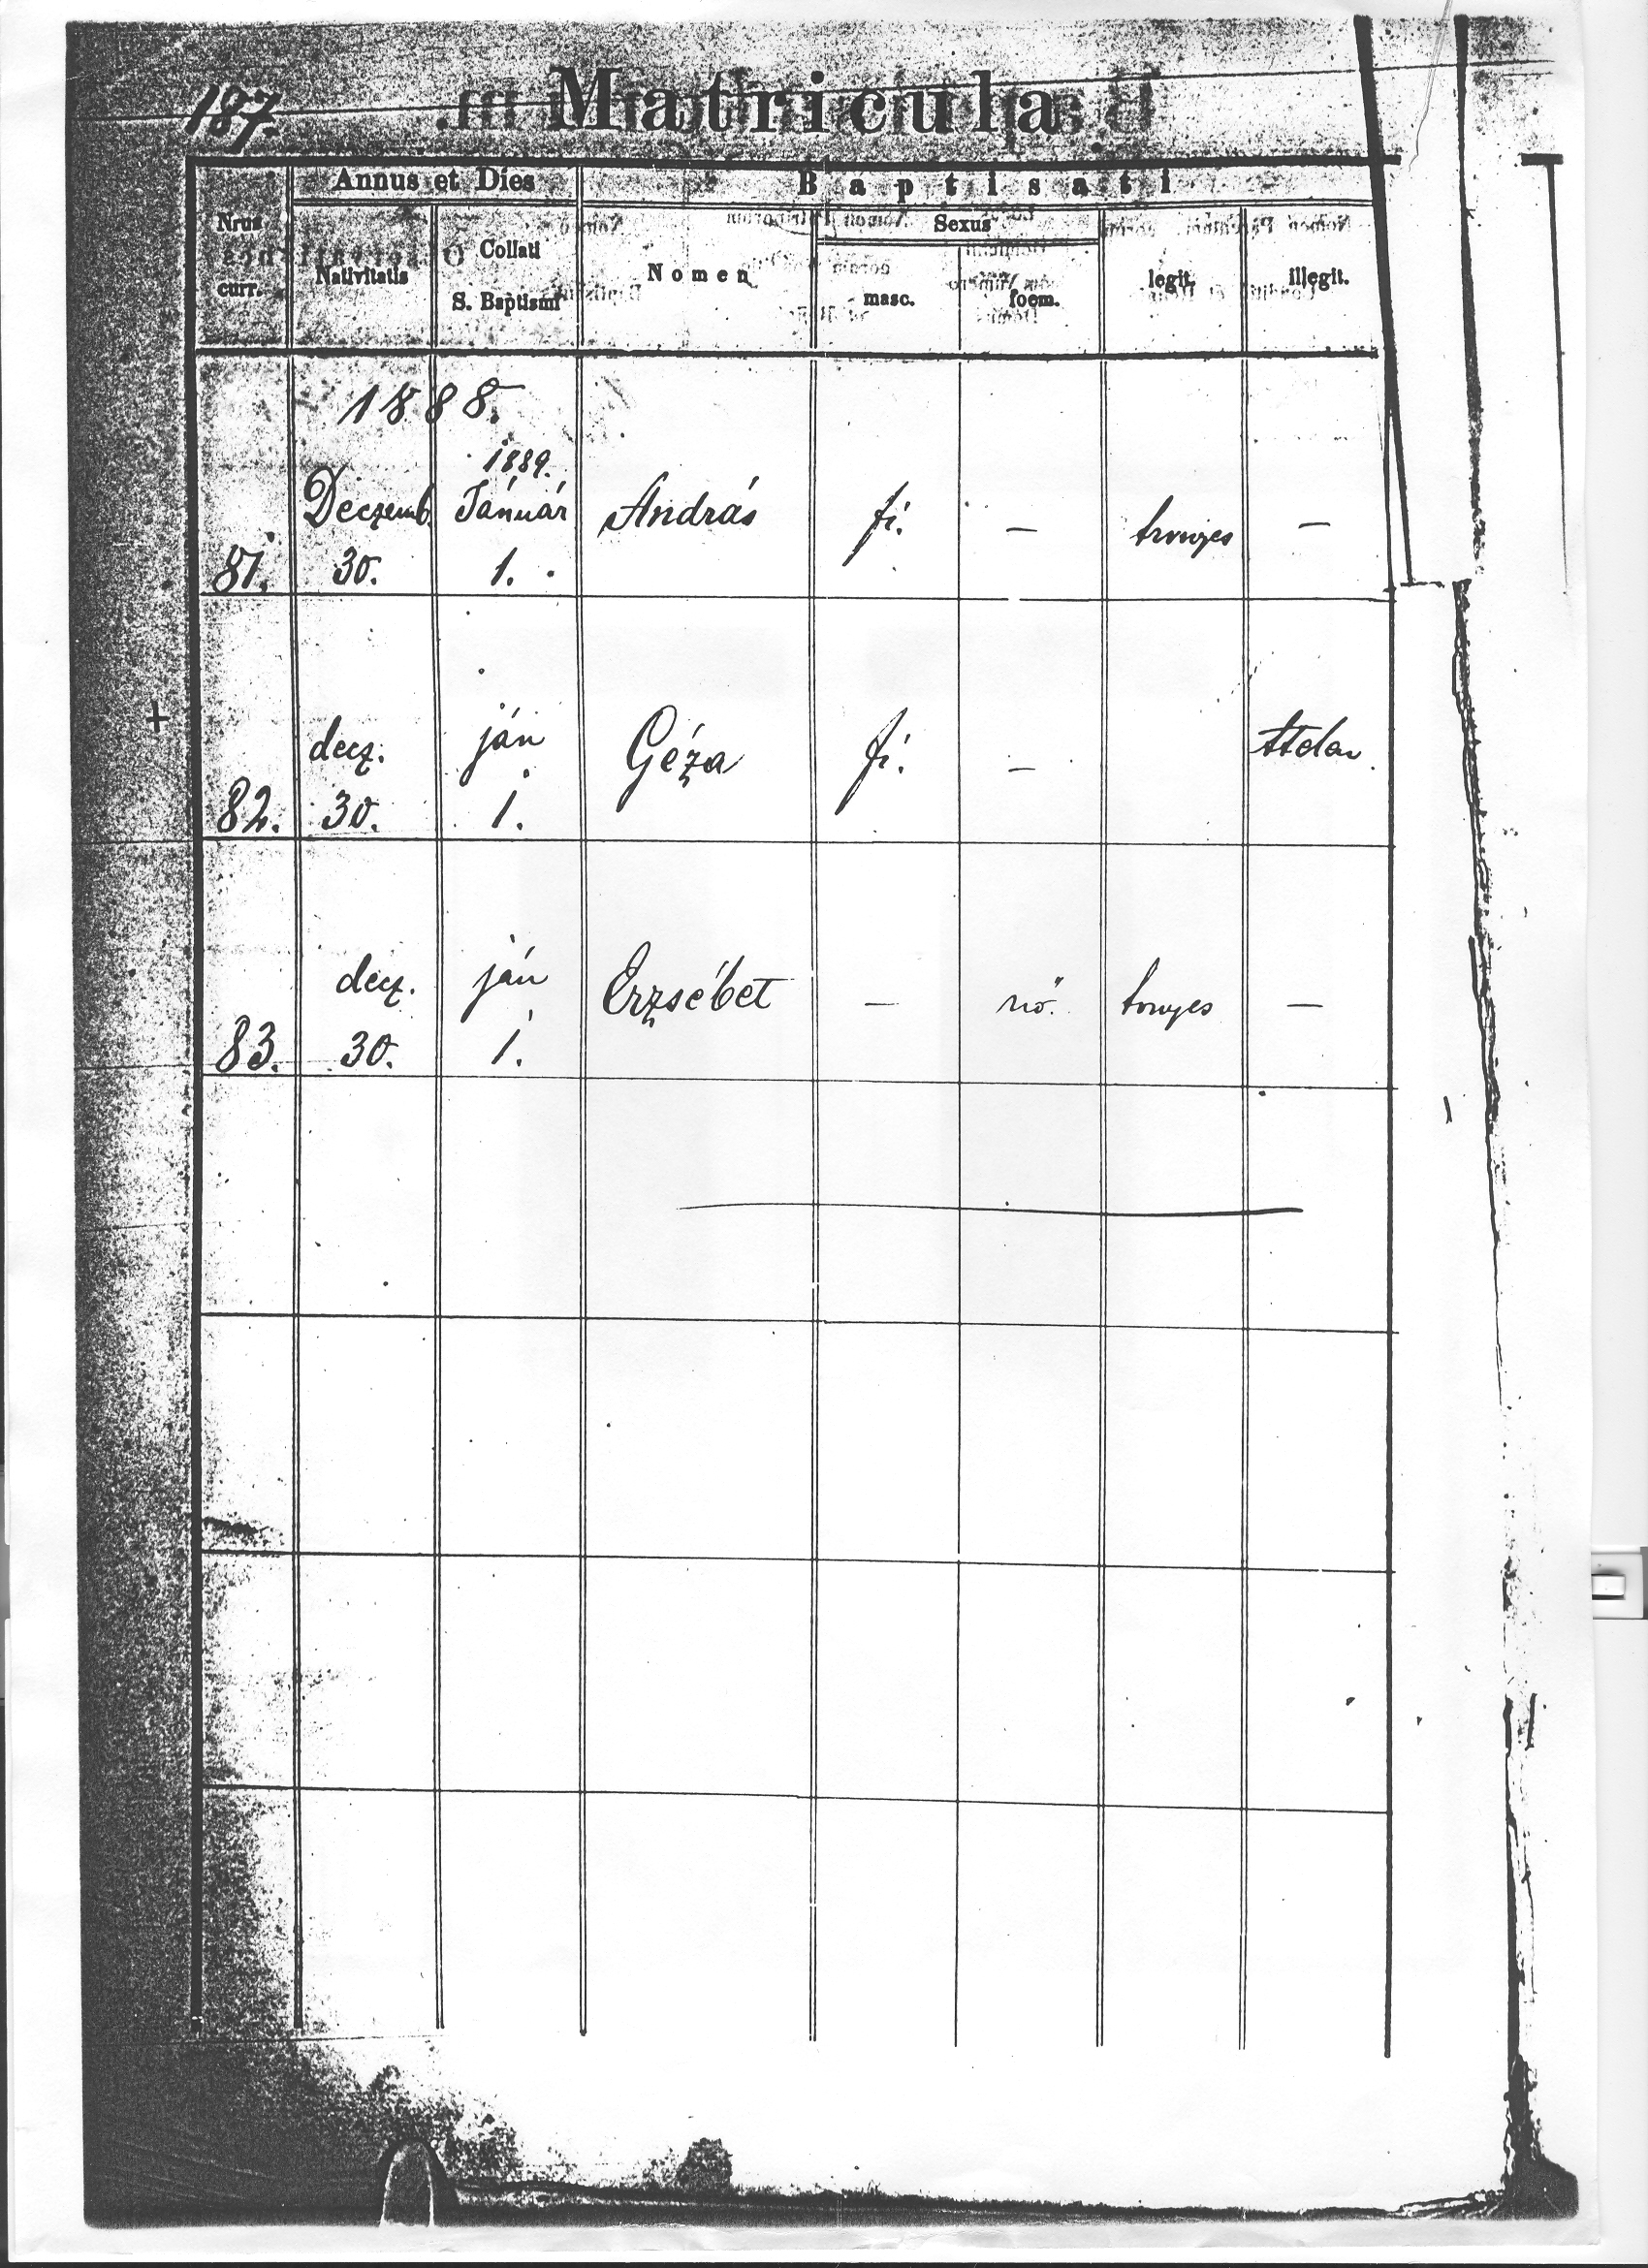 187.
Matricula
Annus et Dies
Baptisati
Nrus curr.
Nativitatis
Collati S. Baptismi
Nomen
Sexus
masc.
foem.
legit.
illegit.
1888.
1889.
Deczemb. Január András fi. — —
81. 30. 1.
+
decz. ján Géza fi. —
82. 30. 1.
decz. ján Erzsébet — nő. —
83. 30. 1.